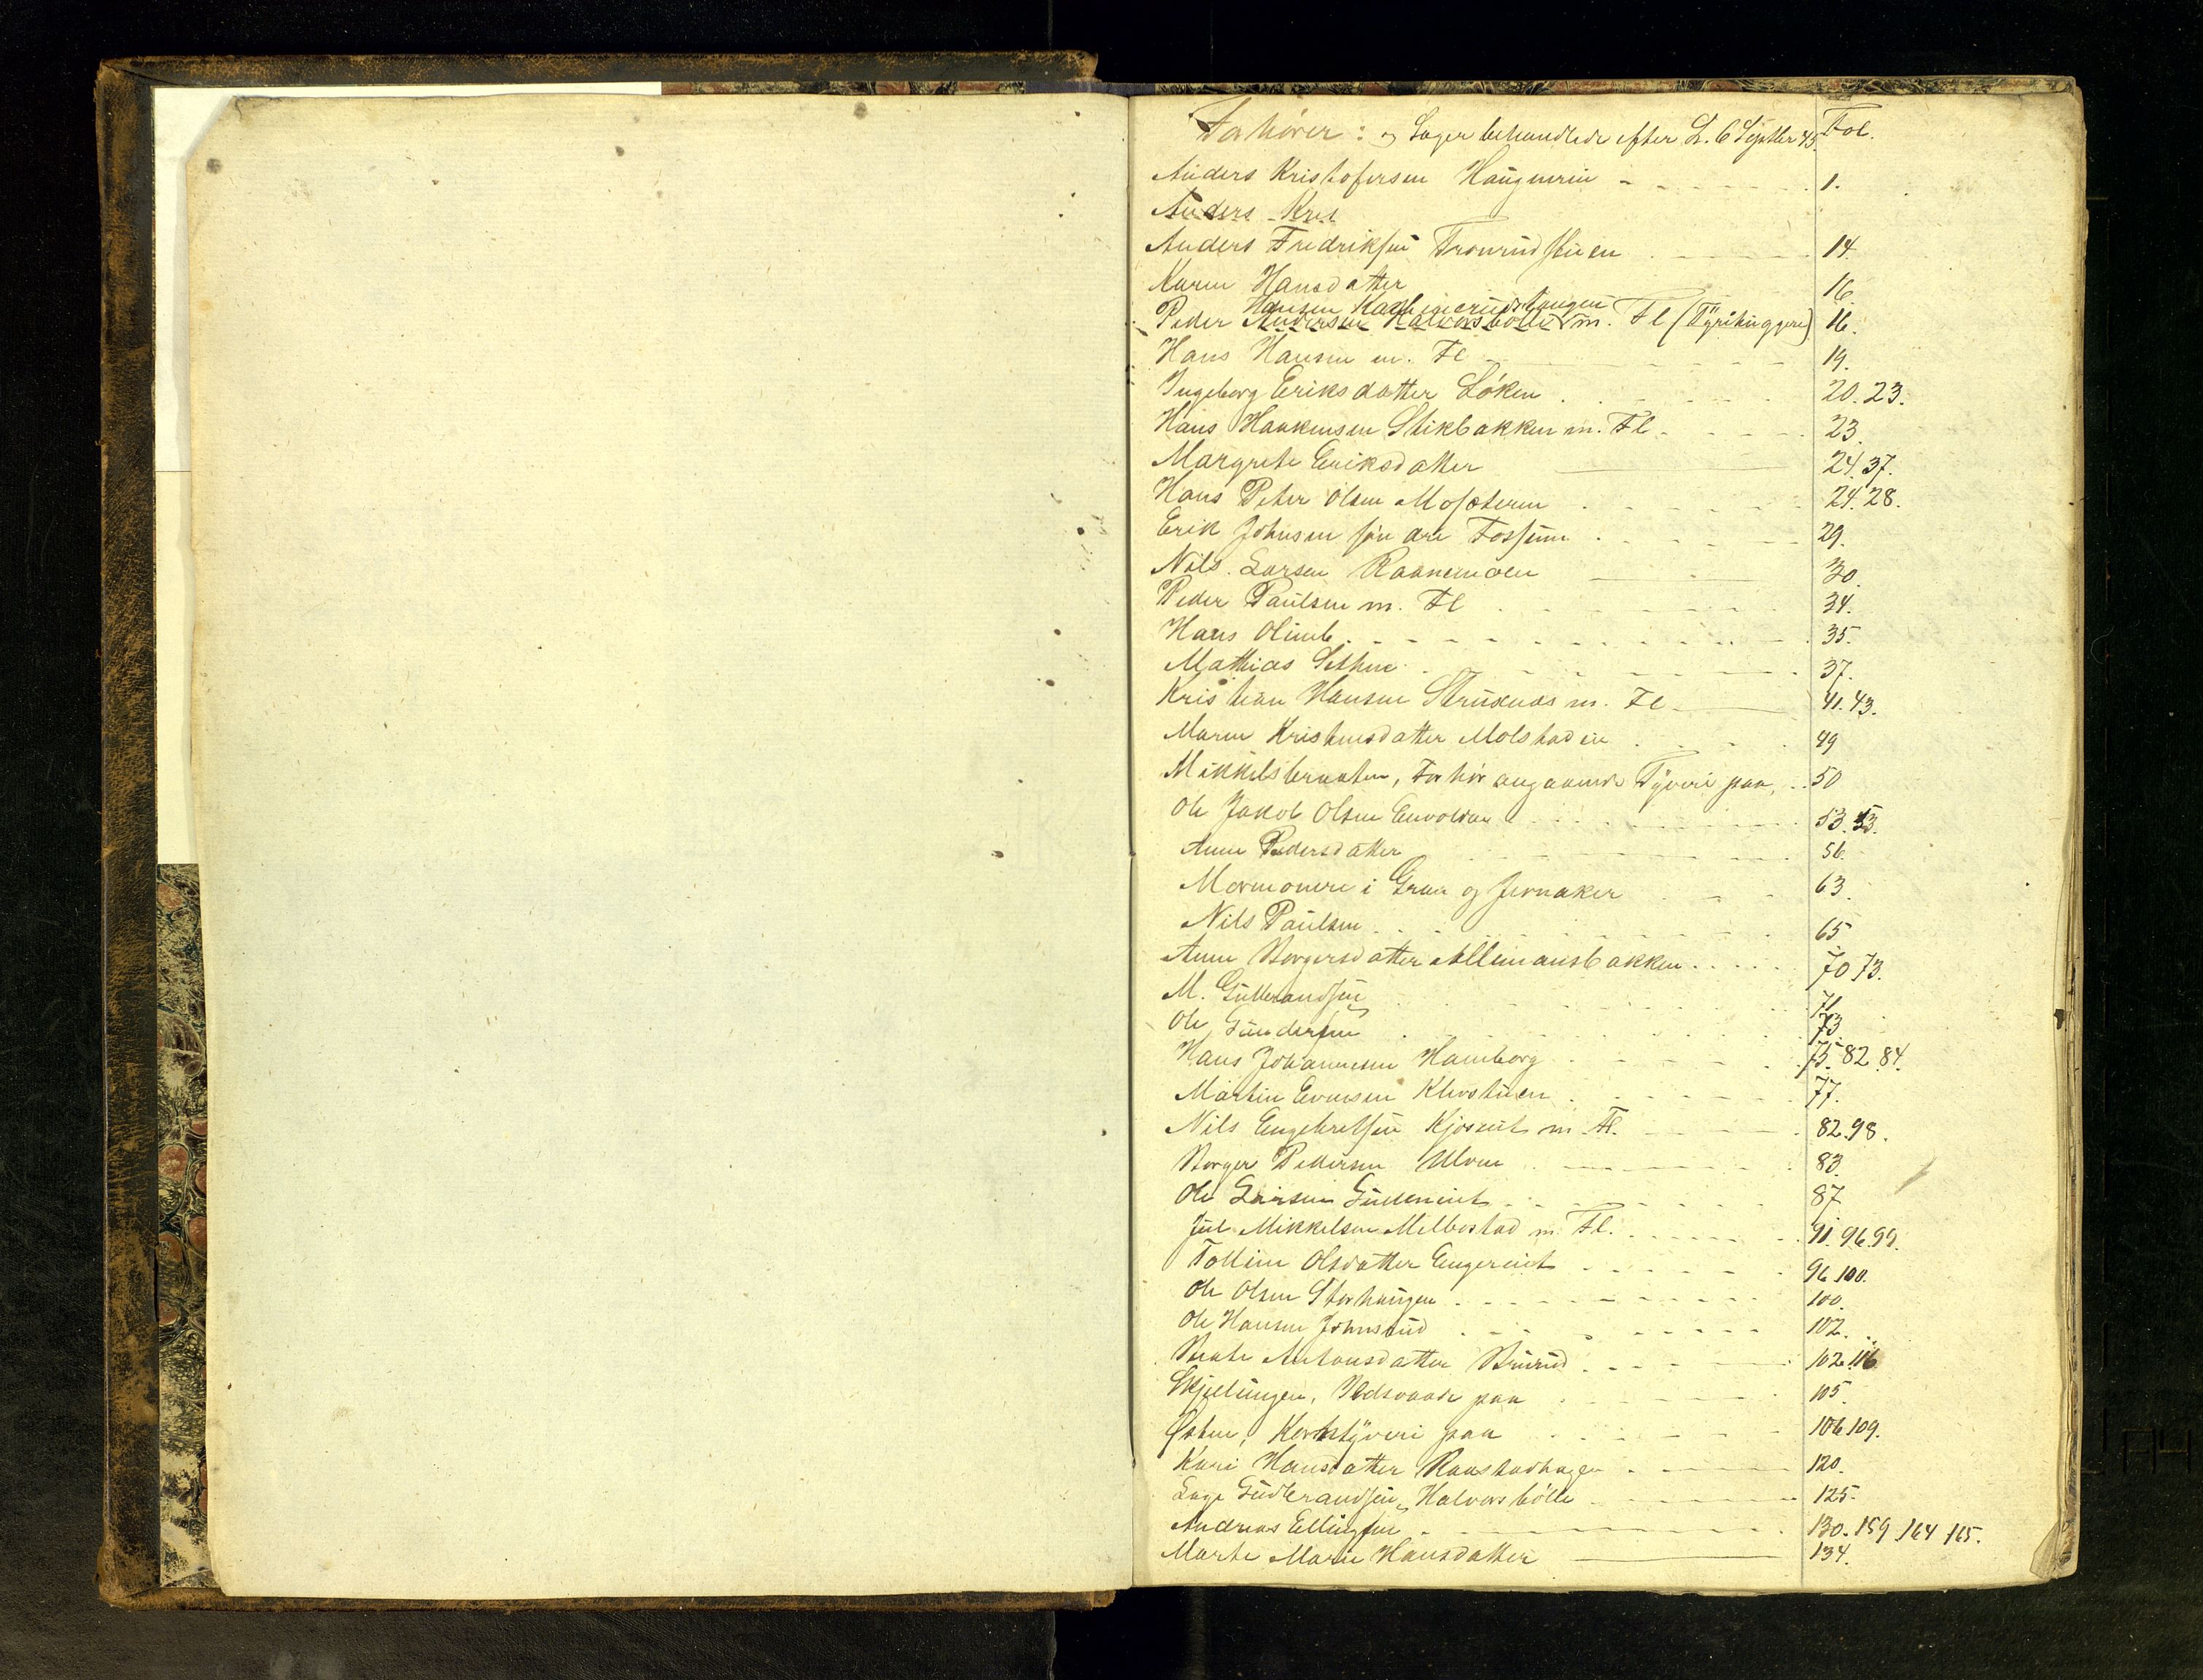 Forhører: og Sager behandlede efter L. 6 Septbr 45. Fol.
Anders Kristofersen Haugnerin 1.
Anders Kris
Anders Fredriksen Tronrudstuen 14.
Karen Hansdatter 16.
Hansen
Peder Andersen Halvorsbölle m. Fl (Tyrihuggere) 16.
Hans Hansen m. Fl 19.
Ingeborg Eriksdatter Löken 20. 23.
Hans Haakensen Stikbakken m. Fl. 23.
Margrete Eriksdatter 24. 37.
Hans Peter Olsen Moseteren 24. 28.
Erik Johnsen søndre Fossum 29.
Nils Larsen Raanemoen 30.
Peder Paulsen m. Fl 34.
Hans Olimb 35.
Mathias Sethne 37.
Kristian Hansen Struxnæs m. Fl 41. 43.
Maren Kristensdatter Molstadeie 49
Mikkelsbraaten, Forhör angaaende Tÿveri paa, 50
Ole Jakob Olsen Envoldsen 53. 53.
Anne Pedersdatter 56.
Mormonere i Gran og Jevnaker 63.
Nils Paulsen 65
Anne Borgersdatter Allemansbakken 70 73.
M. Gulbrandsen 71.
Ole Gundersen 73
Hans Johannesen Hamborg 75. 82. 84.
Martin Evensen Klevstuen 77.
Nils Engebretsen Kjoseiet m. Fl. 82. 98.
Borger Pedersen Ulven 83.
Ole Larsen Gudeneiet 87
Juel Mikkelsen Melbostad m. Fl. 91. 96. 99.
Tolline Olsdatter Engereiet 96 100.
Ole Olsen Storhaugen 100.
Ole Hansen Johnsrud 102.
Beate Antonsdatter Brurud 102. 116
Skjellingen, Ildsvaade paa 105.
Østen, Korntÿveri paa 106 109.
Kari Hansdatter Raastadhagen 120.
Lage Gudbrandsen Halvorsbölle 125.
Andreas Ellingsen 130. 159 164 165.
Marte Marie Hansdatter 134.